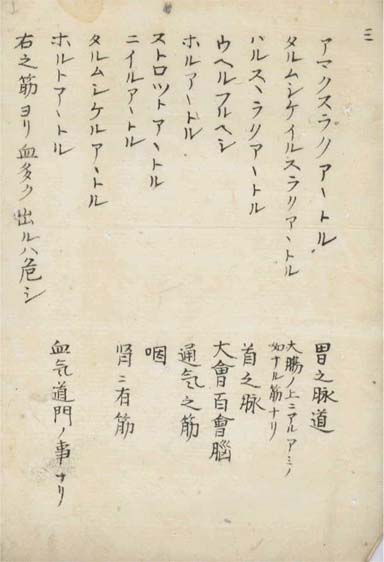 三
アマクスラクアヽトル 胃之脉道
タルムシケイルスラクアヽトル 大膓ノ上ニアルアミノ
如ナル筋ナリ
ハルスヽラクアヽトル 首之脉
ウヘルフルヘシ 大會百會腦
ホルアヽトル 通気之筋
ストロツトアヽトル 咽
ニイルアヽトル 腎ニ有筋
タルムシケルアヽトル
ホルトアヽトル 血気道門ノ事ナリ
右之筋ヨリ血多ク出ルハ危シ